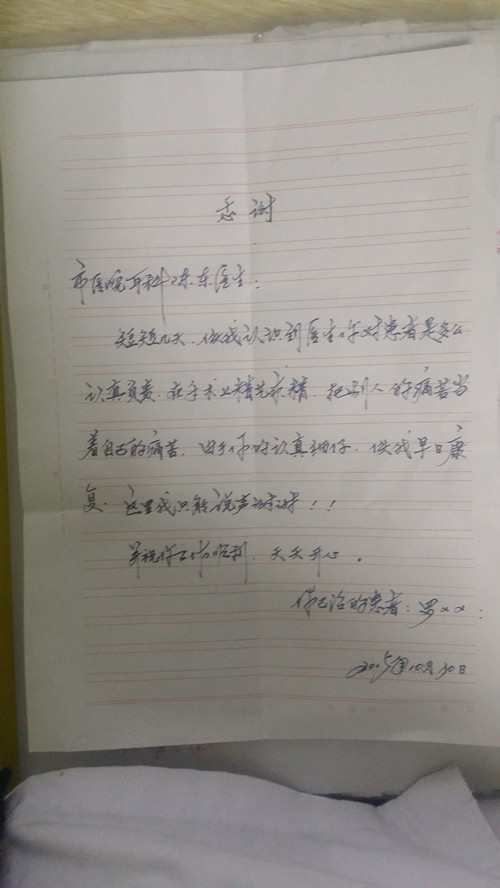 感谢
市医院耳科陈东医生：
短短几天，使我认识到医生你对患者是多么
认真负责，在手术上精益求精，把别人的痛苦当
着自己的痛苦，由于你的认真细仔，使我早日康
复，这里我只能说声谢谢！！
并祝你工作顺利，天天开心。
你已治的患者：罗××：
2015年10月30日